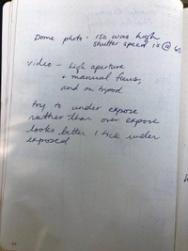 Dome photo - iso was high
shutter speed 1s @ 60
video - high aperture
+ manual focus,
and on tripod
try to under expose
rather than over expose
looks better 1 tick under
exposed